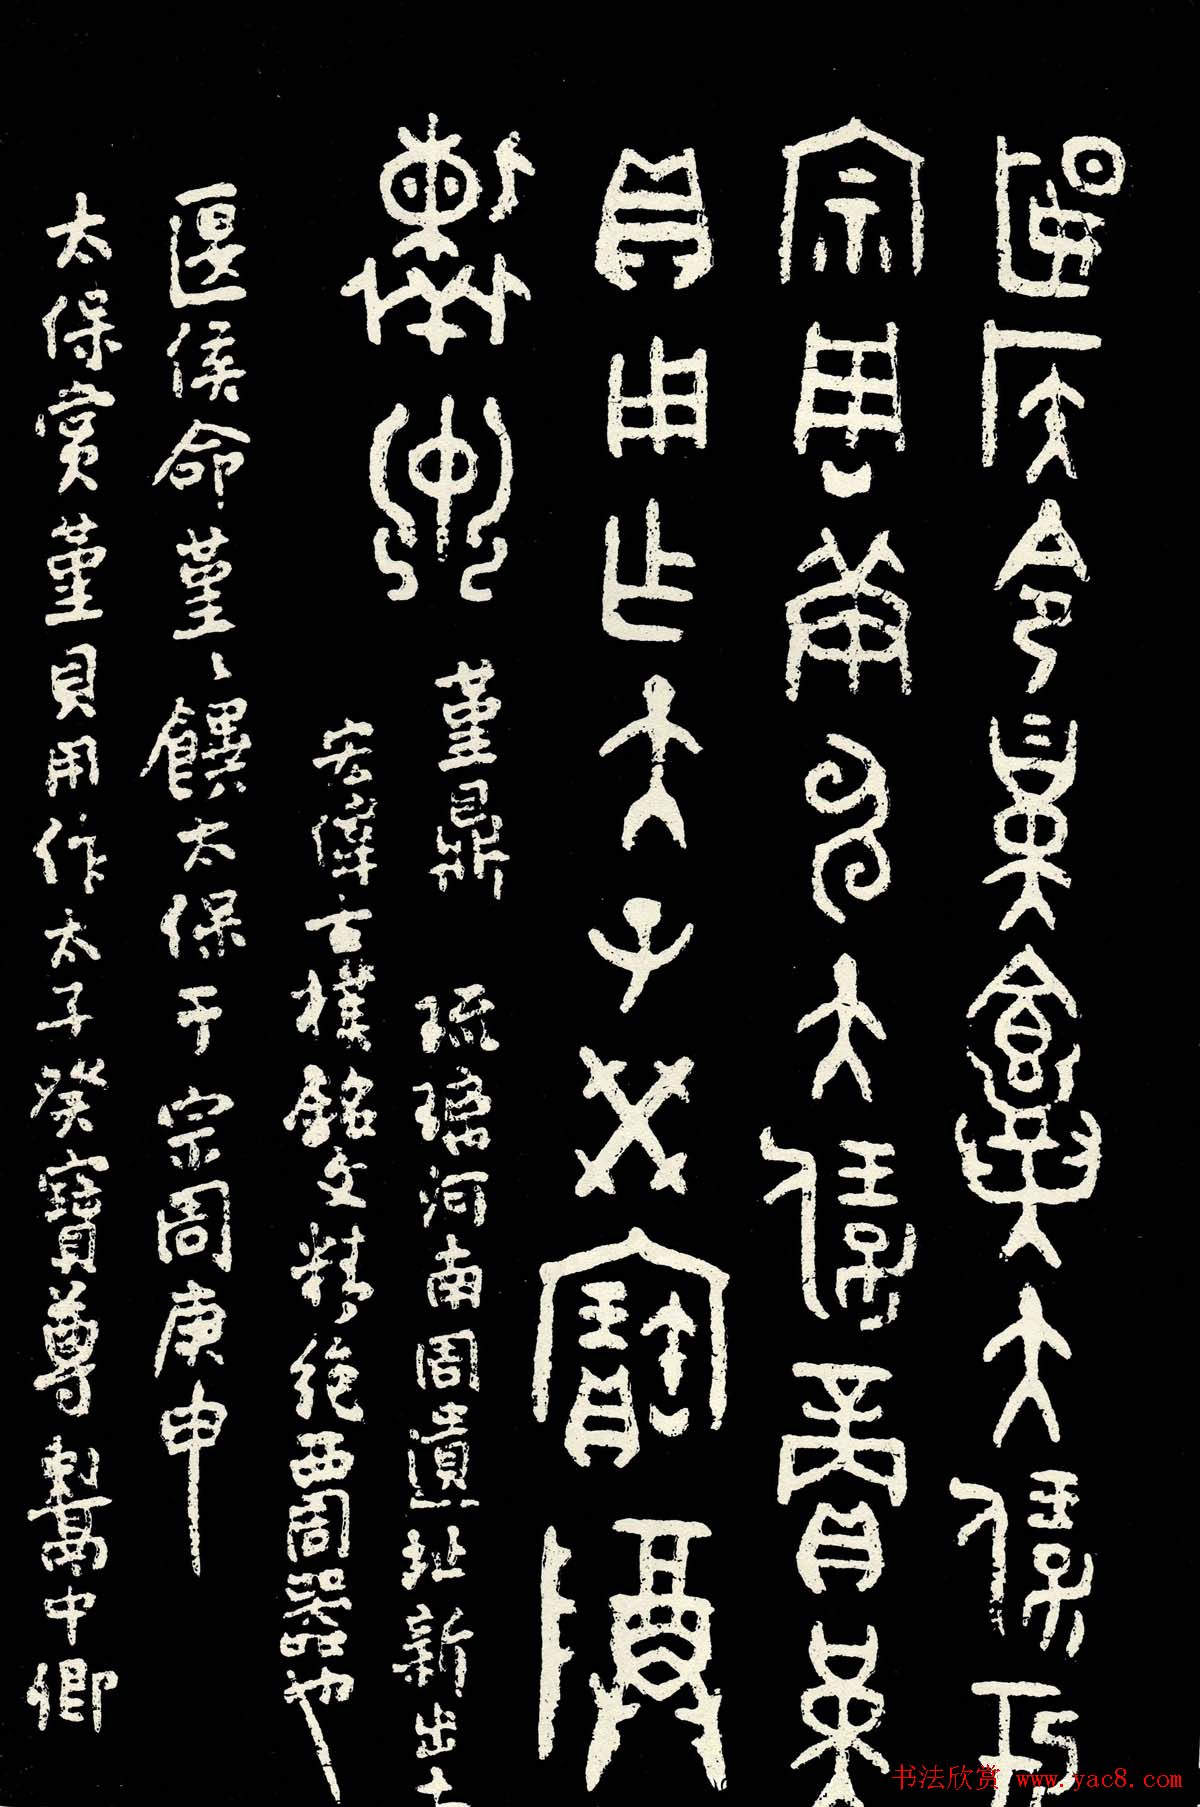 匽侯令堇饎大保于
宗周庚申大保賞堇
貝用乍大子癸寶𬯚
堇鼎 琉璃河南周遺址新出土
宏偉古樸銘文精絶西周器也
匽侯命堇〻饌太保于宗周庚申
太保賞堇貝用作太子癸寶尊中卿
书法欣赏 www.yac8.com